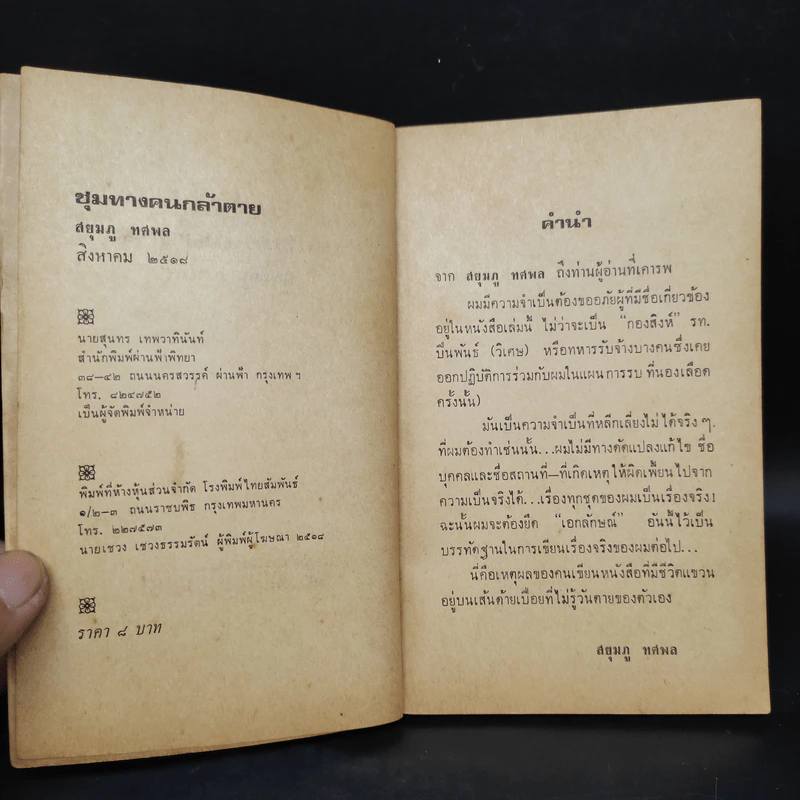 ชุมทางคนกล้าตาย
สยุมภู ทศพล
สิงหาคม ๒๕๑๘
นายสุนทร เทพวาทินันท์
สำนักพิมพ์ผ่านฟ้าพิทยา
๓๘—๔๒ ถนนนครสวรรค์ ผ่านฟ้า กรุงเทพ ฯ
โทร. ๘๒๔๗๕๒
เป็นผู้จัดพิมพ์จำหน่าย
พิมพ์ที่ห้างหุ้นส่วนจำกัด โรงพิมพ์ไทยสัมพันธ์
๑/๒—๓ ถนนราชบพิธ กรุงเทพมหานคร
โทร. ๒๒๗๕๗๓
นายเชวง เชวงธรรมรัตน์ ผู้พิมพ์ผู้โฆษณา ๒๕๑๘
ราคา ๘ บาท
คำนำ
จาก สยุมภู ทศพล ถึงท่านผู้อ่านที่เคารพ
ผมมีความจำเป็นต้องขออภัยผู้ที่มีชื่อเกี่ยวข้อง
อยู่ในหนังสือเล่มนี้ ไม่ว่าจะเป็น “กองสิงห์” รท.
ปืนพันธ์ (วิเศษ) หรือทหารรับจ้างบางคนซึ่งเคย
ออกปฏิบัติการร่วมกับผมในแผนการรบ ที่นองเลือด
ครั้งนั้น)
มันเป็นความจำเป็นที่หลีกเลี่ยงไม่ได้จริง ๆ.
ที่ผมต้องทำเช่นนั้น...ผมไม่มีทางดัดแปลงแก้ไข ชื่อ
บุคคลและชื่อสถานที่—ที่เกิดเหตุ ให้ผิดเพี้ยนไปจาก
ความเป็นจริงได้...เรื่องทุกชุดของผมเป็นเรื่องจริง!
ฉะนั้นผมจะต้องยึด “เอกลักษณ์” อันนี้ไว้เป็น
บรรทัดฐานในการเขียนเรื่องจริงของผมต่อไป...
นี่คือเหตุผลของคนเขียนหนังสือที่มีชีวิตแขวน
อยู่บนเส้นด้ายเปื่อยที่ไม่รู้วันตายของตัวเอง
สยุมภู ทศพล